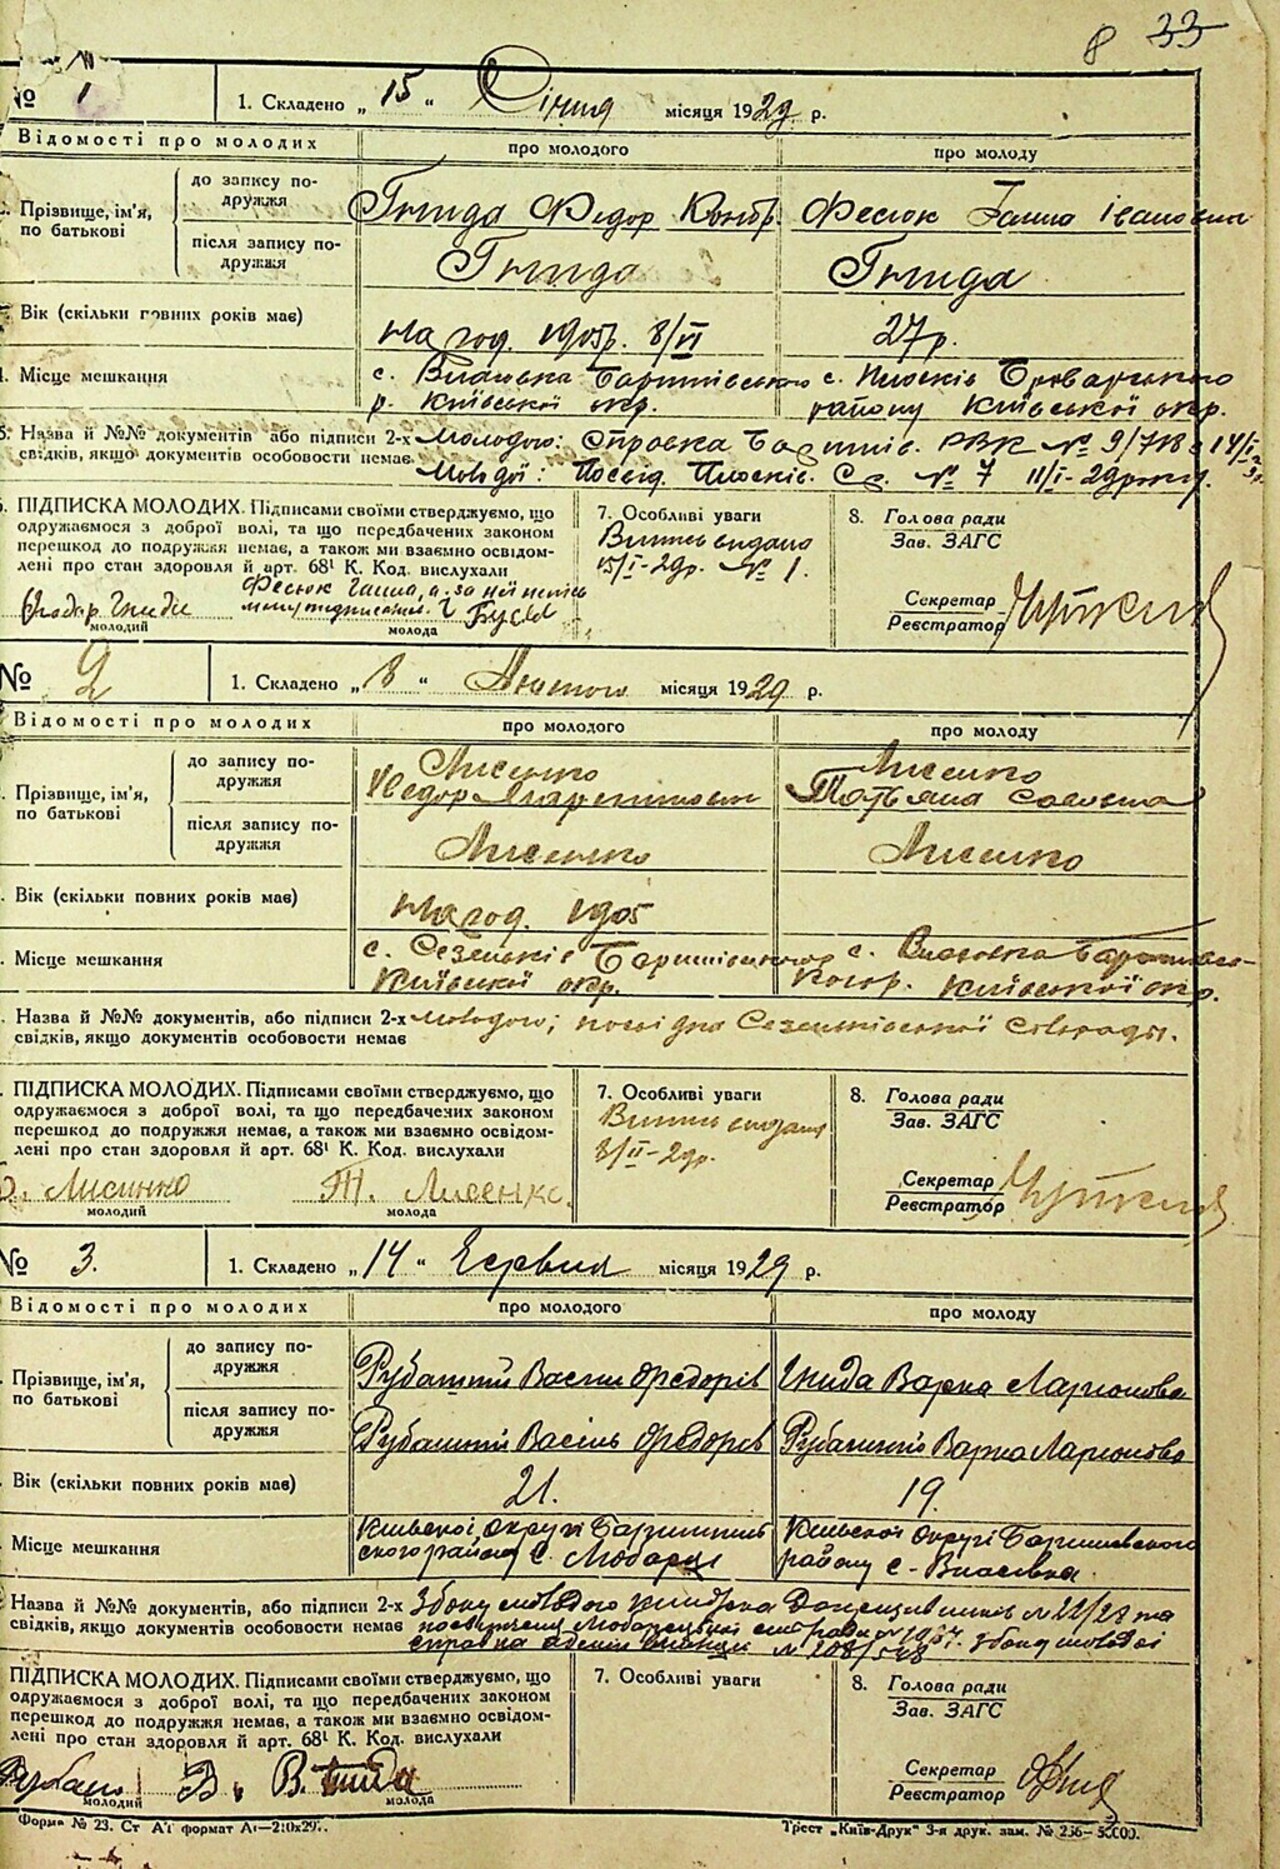 8 33
№ 1 1. Складено „ 15 “ Січня місяця 1929 р.
Відомості про молодих про молодого про молоду
Прізвище, ім'я, по батькові
до запису подружжя Гнида Федор Кондр. Фесюк Ганна Івановна
після запису подружжя Гнида Гнида
Вік (скільки повних років має) На год. 1905р. 8/VI 27р.
4. Місце мешкання с. Власовка Баришівського с. Плосків Броварського
р. Київської окр. району Київської окр.
5. Назва й №№ документів або підписи 2-х Молодого: Справка Баришів. РВК № 9/718 14/I
свідків, якщо документів особовости немає. Молодої: Посвід. Плосків. С.р. № 7 11/I-29року.
6. ПІДПИСКА МОЛОДИХ. Підписами своїми стверджуємо, що
одружаємося з доброї волі, та що передбачених законом
перешкод до подружжя немає, а також ми взаємно освідом-
лені про стан здоровля й арт. 68¹ К. Код. вислухали
Федор Гнида Фесюк Ганна, а за неї
молодий молода
7. Особливі уваги
Випись видано
15/I-29р. № 1.
8. Голова ради
Зав. ЗАГС
Секретар
Реєстратор
№ 2 1. Складено „ 8 “ Лютого місяця 1929 р.
Відомості про молодих про молодого про молоду
Прізвище, ім'я, по батькові
до запису подружжя Лисенко Лисенко
Федор Татьяна Савовна
після запису подружжя Лисенко Лисенко
Вік (скільки повних років має) На год. 1905
Місце мешкання с. Сезенків Баришівського с. Власовка Баришівсь-
Київської окр. кого р. Київської окр.
Назва й №№ документів, або підписи 2-х Молодого; посвідка Сезенківської Сільради.
свідків, якщо документів особовости немає
ПІДПИСКА МОЛОДИХ. Підписами своїми стверджуємо, що
одружаємося з доброї волі, та що передбачених законом
перешкод до подружжя немає, а також ми взаємно освідом-
лені про стан здоровля й арт. 68¹ К. Код. вислухали
Лисинко Т. Лисенко.
молодий молода
7. Особливі уваги
Випись видана
8/II-29р.
8. Голова ради
Зав. ЗАГС
Секретар
Реєстратор
№ 3. 1. Складено „ 14 “ Червня місяця 1929 р.
Відомості про молодих про молодого про молоду
Прізвище, ім'я, по батькові
до запису подружжя Васил Федорів Гнида Варка Ларионова
після запису подружжя Василь Федорів Варка Ларионова
Вік (скільки повних років має) 21. 19.
Місце мешкання Киевскої округи Баришив Киевскої округи Баришевского
ского району с. району с. Власівка.
Назва й №№ документів, або підписи 2-х Збоку молодого № 22/28 та
свідків, якщо документів особовости немає збоку молодої
справка № 208/548
ПІДПИСКА МОЛОДИХ. Підписами своїми стверджуємо, що
одружаємося з доброї волі, та що передбачених законом
перешкод до подружжя немає, а також ми взаємно освідом-
лені про стан здоровля й арт. 68¹ К. Код. вислухали
В. В. Гнида
молодий молода
7. Особливі уваги
8. Голова ради
Зав. ЗАГС
Секретар
Реєстратор
Форма № 23. Ст А1 формат А₁—210х297.
Трест „Київ-Друк“ 3-я друк. зам. № 256–50000.